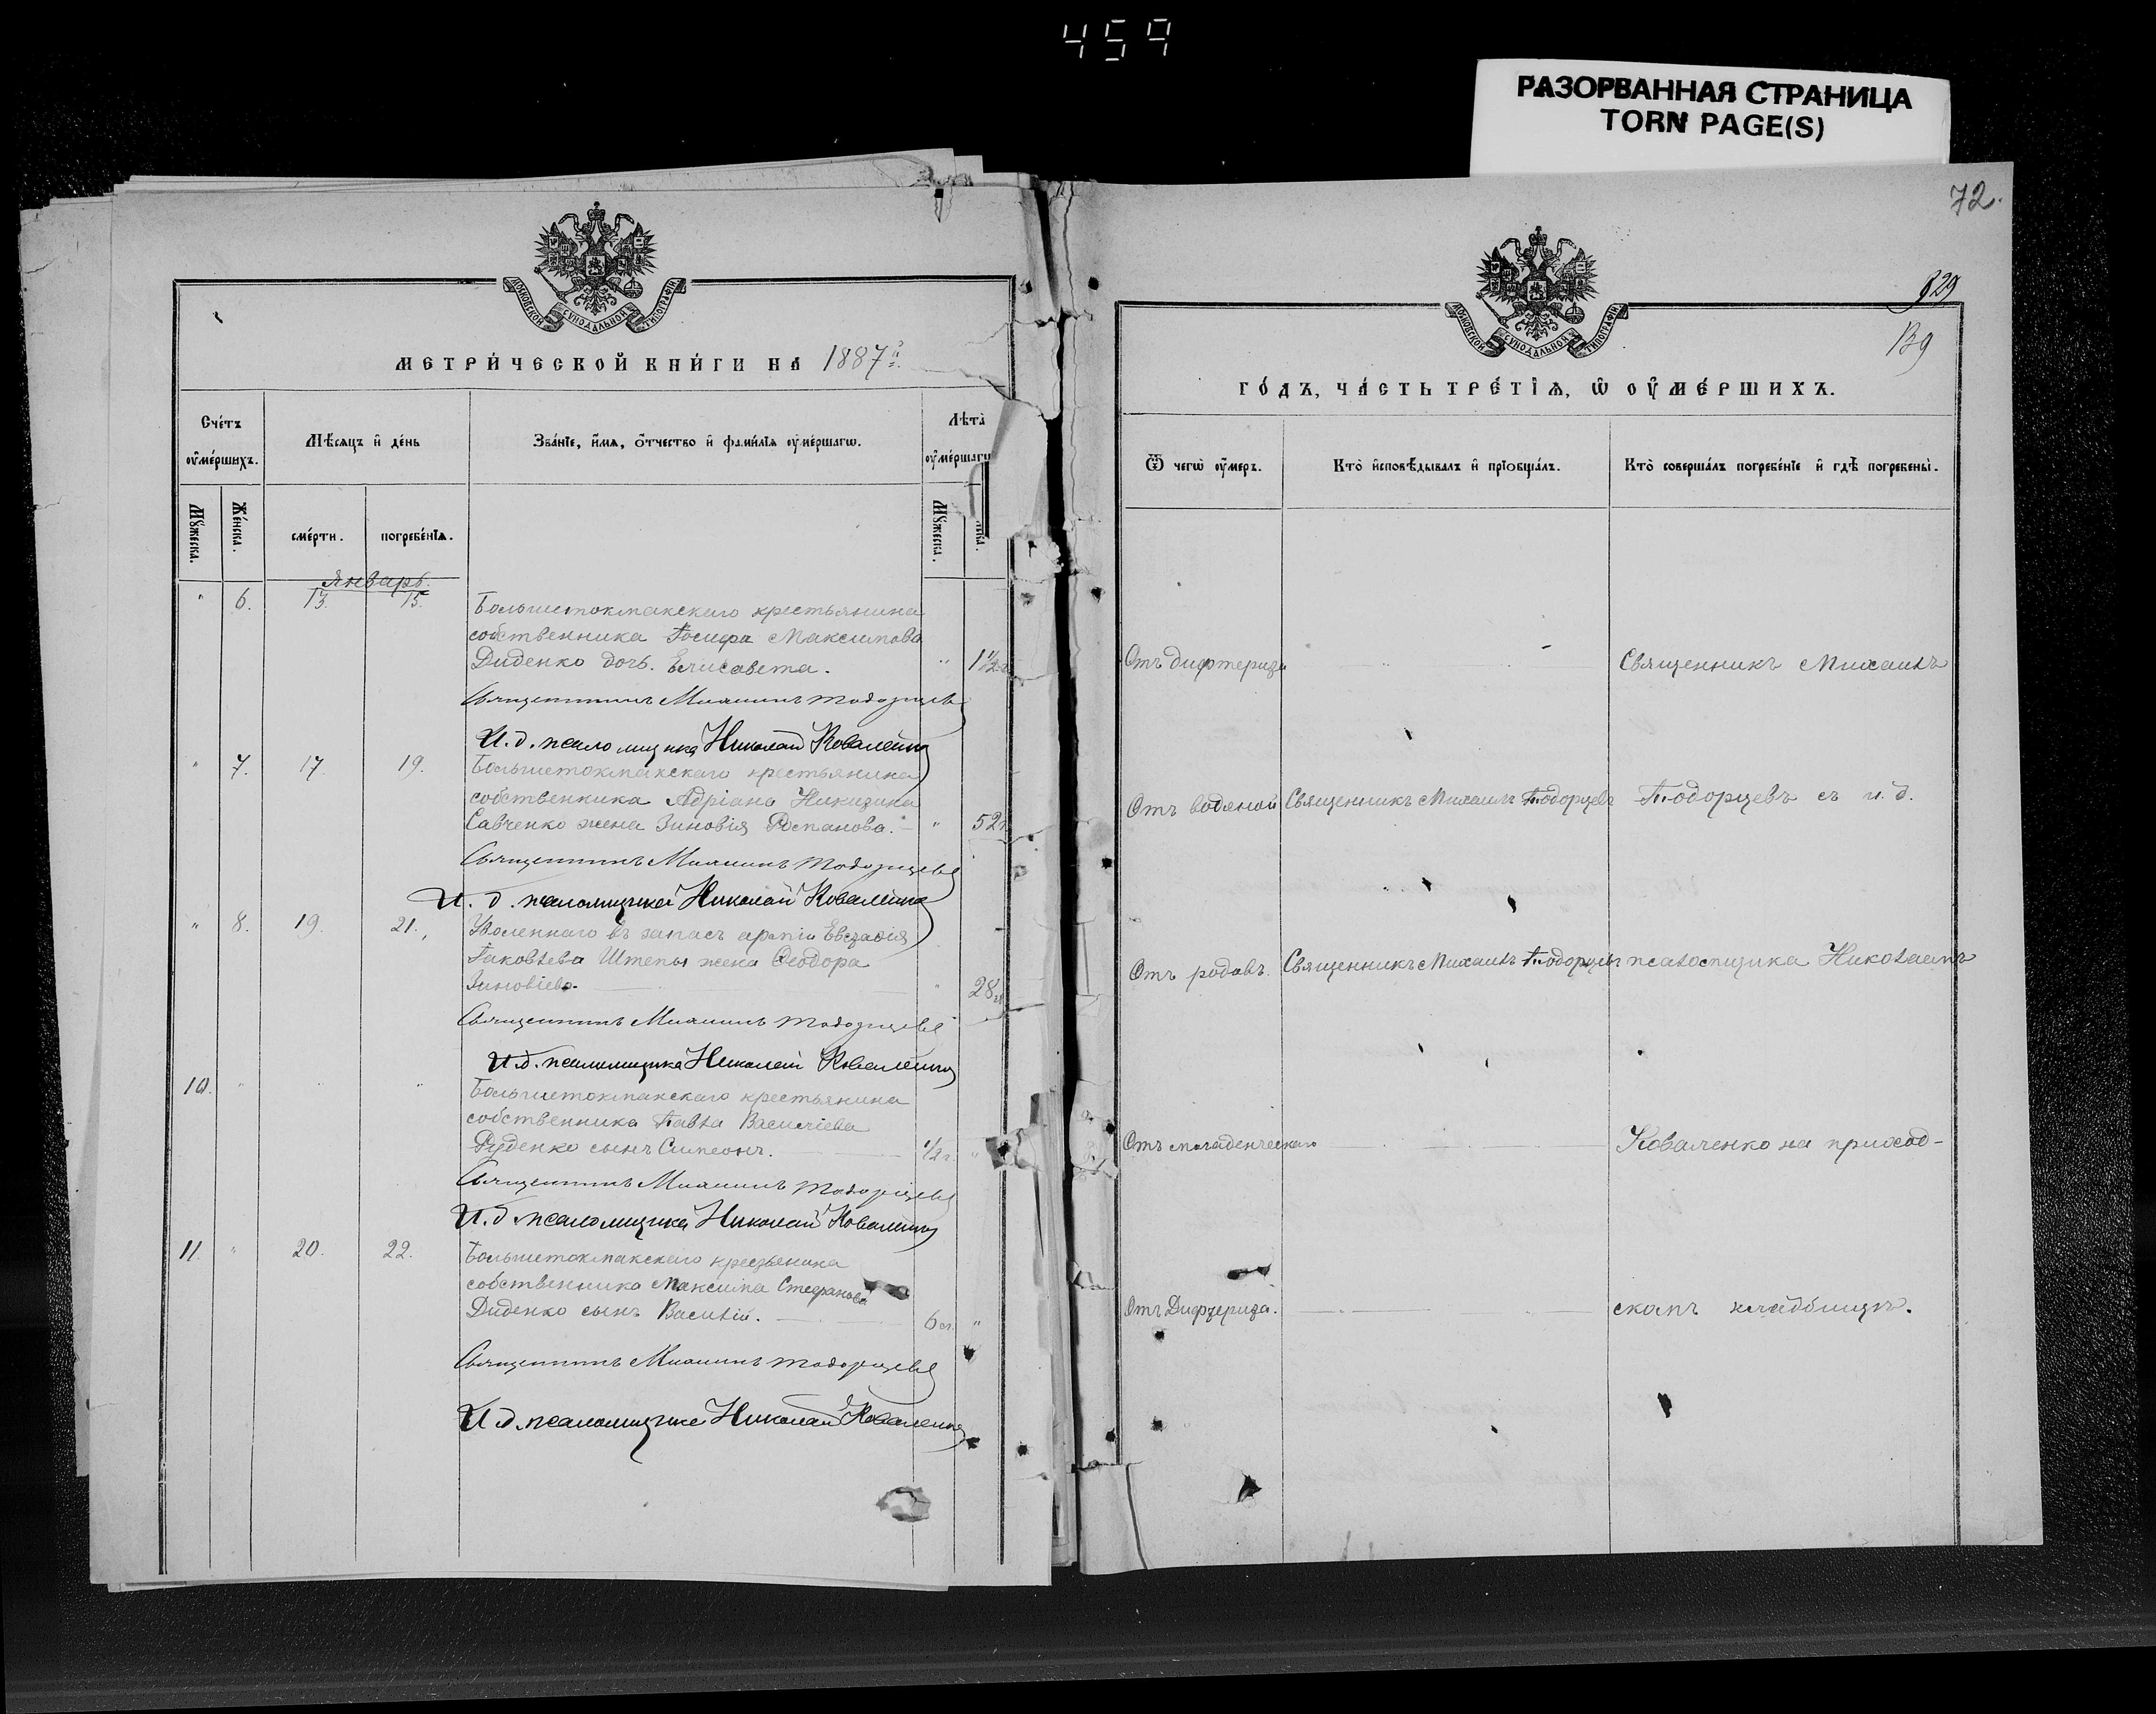 459
РАЗОРВАННАЯ СТРАНИЦА
TORN PAGE(S)
72.
МОСКОВСКОЙ СѴНОДАЛЬНОЙ ТИПОГРАФІИ
МЕТРИ́ЧЕСКОЙ КНИ́ГИ НА 1887й
Сче́тъ ᲂу҆ме́ршихъ.
Мѣ́сяцъ и҆ де́нь
Зва́нїе, и҆́мя, ѻ҆́тчество и҆ фами́лїя ᲂу҆ме́ршагѡ.
Лѣта̀ ᲂу҆ме́ршагѡ
Мꙋ́жеска.
Же́нска.
сме́рти.
погребе́нїѧ.
Мꙋ́жеска.
Январь.
" 6. 13. 15. Большетокмакскаго крестьянина
собственника Іосифа Максимова
Диденко дочь Елисавета. " 1½
Священникъ Михаилъ Тодорцевъ
И. д. псаломщика Николай Коваленко
" 7. 17. 19. Большетокмакскаго крестьянина
собственника Адріана Никитина
Савченко жена Зиновія " 52
Священникъ Михаилъ Тодорцевъ
И. д. псаломщика Николай Коваленко
" 8. 19. 21. Уволеннаго въ запасъ арміи Евстафія
Іаковлева Штепы жена Ѳеодора
Зиновіева. " 28
Священникъ Михаилъ Тодорцевъ
И. д. псаломщика Николай Коваленко
10. " " " Большетокмакскаго крестьянина
собственника Павла Василіева
Руденко сынъ Симеонъ. ½ г. "
Священникъ Михаилъ Тодорцевъ
И. д. псаломщика Николай Коваленко
11. " 20. 22. Большетокмакскаго крестьянина
собственника Максима Стефанова
Диденко сынъ Василій. 6 "
Священникъ Михаилъ Тодорцевъ
И. д. псаломщика Николай Коваленко
МОСКОВСКОЙ СѴНОДАЛЬНОЙ ТИПОГРАФІИ
139
ГО́ДЪ, ЧА́СТЬ ТРЕ́ТЇѦ, Ѡ҆ ОУ҆МЕ́РШИХЪ.
Ѿ чегѡ̀ ᲂу҆́меръ.
Кто̀ и҆сповѣ́дывалъ и҆ прїѻбща́лъ.
Кто̀ соверша́лъ погребе́нїе и҆ гдѣ̀ погребены̀.
Отъ дифтерита Священникъ Михаилъ
Отъ водяной Священникъ Михаилъ Тодорцевъ Тодорцевъ съ и. д.
Отъ родовъ. Священникъ Михаилъ Тодорцевъ псаломщика Николаемъ
Отъ младенческаго Коваленко на приход-
Отъ Дифтерита. скомъ кладбищѣ.